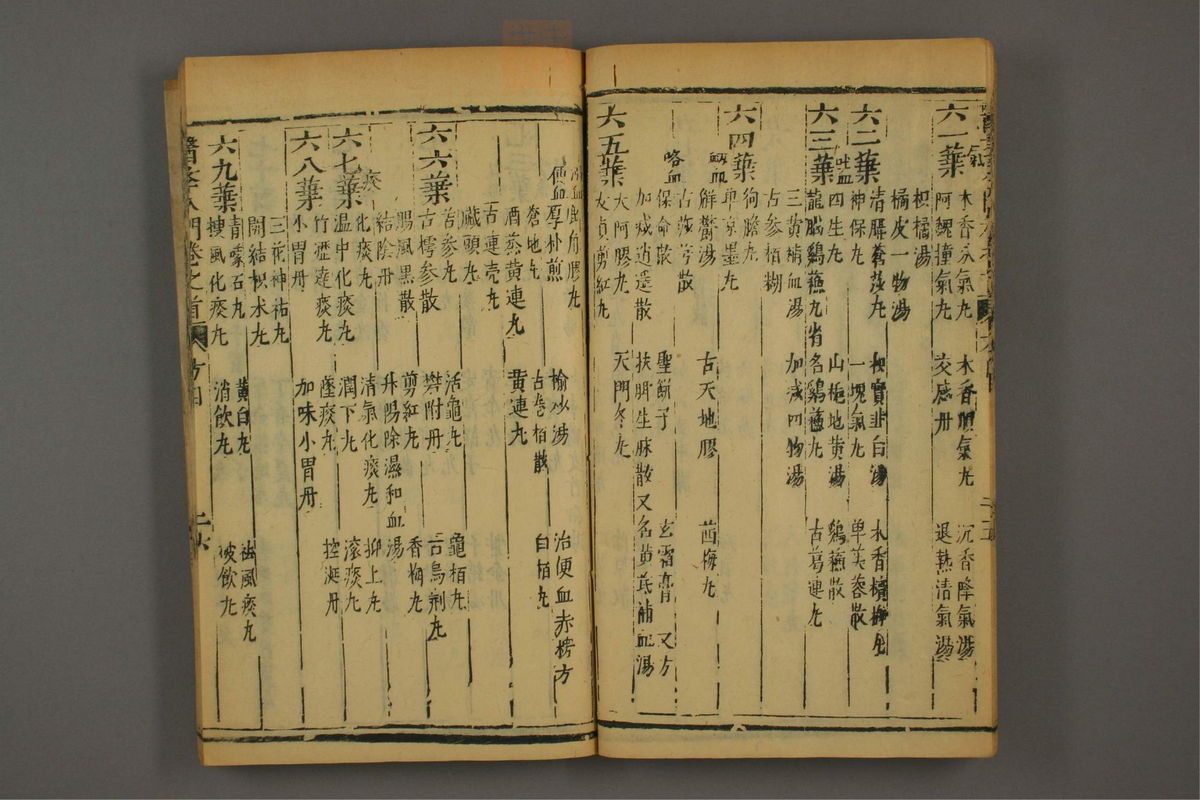 六一葉
氣
木香分氣丸 木香順氣丸 沉香降氣湯
阿魏撞氣丸 交感丹 退熱清氣湯
枳橘湯
橘皮一物湯
六二葉
清膈蒼莎丸 枳實韭白湯 木香檳榔丸
神保丸 一塊氣丸 單芙蓉散
吐血
四生丸 山梔地黃湯 鷄蘇散
六三葉
龍腦鷄蘇丸省名鷄蘇丸 古葛連丸
三黃補血湯 加減四物湯
古參栢糊
狗膽丸
六四葉
單京墨丸
衂血
解鬱湯 古天地膠 茜梅丸
古莎芎散
咯血
保命散 聖餅子 玄霜膏 又方
加減逍遥散 扶脾生脉散又名黃芪補血湯
六五葉
大阿膠丸 天門冬丸
女貞剪紅丸
便血
厚朴煎 榆砂湯 治便血赤楞方
蒼地丸 古卷栢散 白栢丸
酒蒸黃連丸 黃連丸
古連壳丸
臟頭丸
六六葉
苦參丸 活龜丸 龜栢丸
古樗參散 礬附丹 古烏荆丸
腸風黑散 剪紅丸 香梅丸
結陰丹 升陽除濕和血湯
痰
化痰丸 清氣化痰丸 抑上丸
六七葉
温中化痰丸 潤下丸 滚痰丸
竹瀝達痰丸 墜痰丸 控涎丹
六八葉
小胃丹 加味小胃丹
三花神祐丸
開結枳术丸
青礞石丸 黃白丸 祛風痰丸
六九葉
搜風化痰丸 消飲丸 破飲丸
醫學入門卷之首 方四 二六